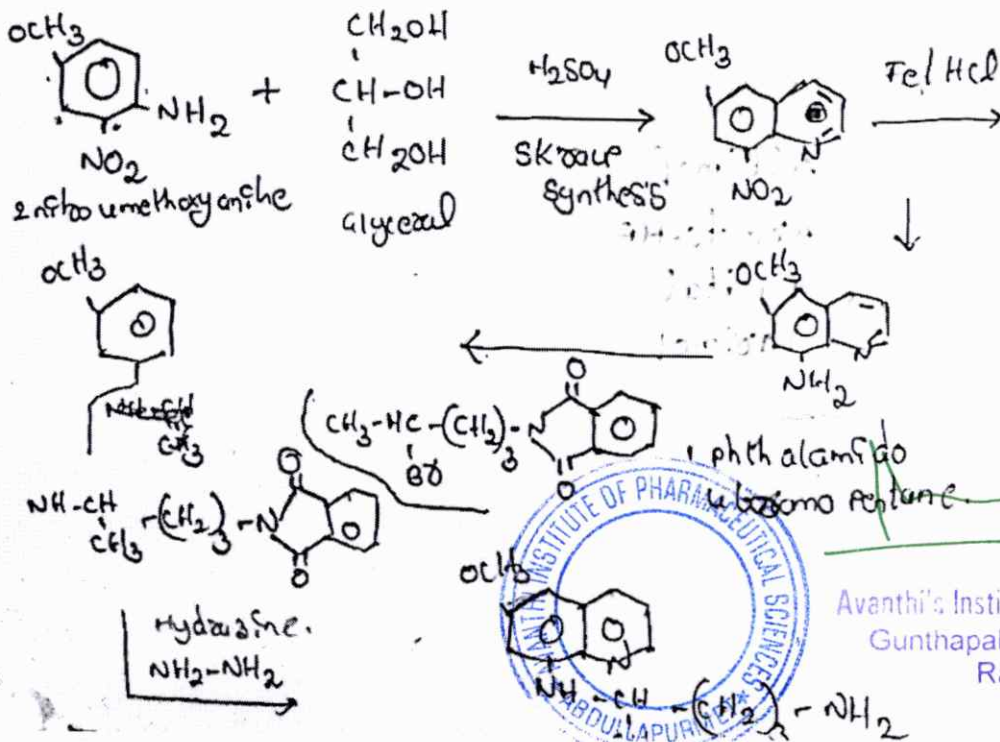 OCH3
NH2
NO2
2 nitro 4 methoxy aniline
+
CH2OH
CH-OH
CH2OH
Glycerol
H2SO4
Skraup
Synthesis
OCH3
N
NO2
Fe/HCl
OCH3
N
NH2
CH3-HC-(CH2)3-N
Br
O
O
1 phthalamido
4 bromo pentane.
OCH3
NH-CH-(CH2)3-N
CH3
O
O
Hydrazine.
NH2-NH2
OCH3
N
NH-CH-(CH2)3-NH2
AVANTHI INSTITUTE OF PHARMACEUTICAL SCIENCES
ABDULLAPUR
Avanthi's Insti
Gunthapal
Ra